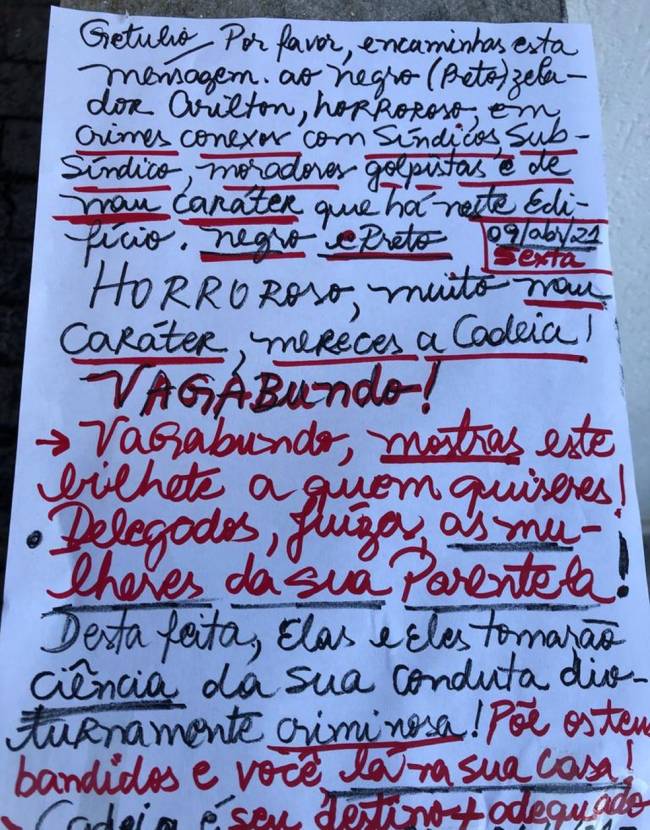 Getulio Por favor, encaminhas esta
mensagem. ao negro (Preto) zela-
dor Arilton, horroroso, em
crimes conexos com Síndicos, Sub-
Síndico, moradores golpistas e de
mau caráter que há neste Edi-
fício. negro e Preto
09/abr/21
Sexta
HORROROSO, muito mau
Caráter, mereces a Cadeia!
VAGABundo!
→ Vagabundo, mostras este
bilhete a quem quiseres!
• Delegados, juíza, as mu-
lheres da sua Parentela!
Desta feita, Elas e Eles tomarão
ciência da sua conduta diu-
turnamente criminosa! Põe os teus
bandidos e você lá na sua casa!
Cadeia é seu destino + adequado